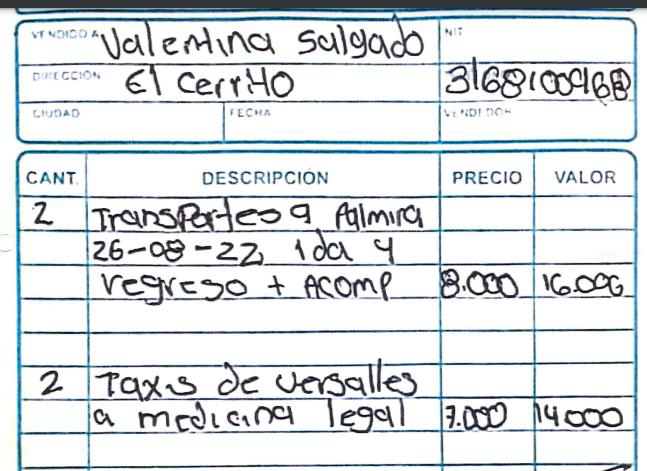 VENDIDO A Valentina Salgado NIT
DIRECCIÓN El Cerrito 3168100968
CIUDAD FECHA VENDEDOR
CANT. DESCRIPCIÓN PRECIO VALOR
2 Transportes a Palmira
26-08-22, Ida y
regreso + Acomp 8.000 16.000
2 Taxis de versalles
a medicina legal 7.000 14000